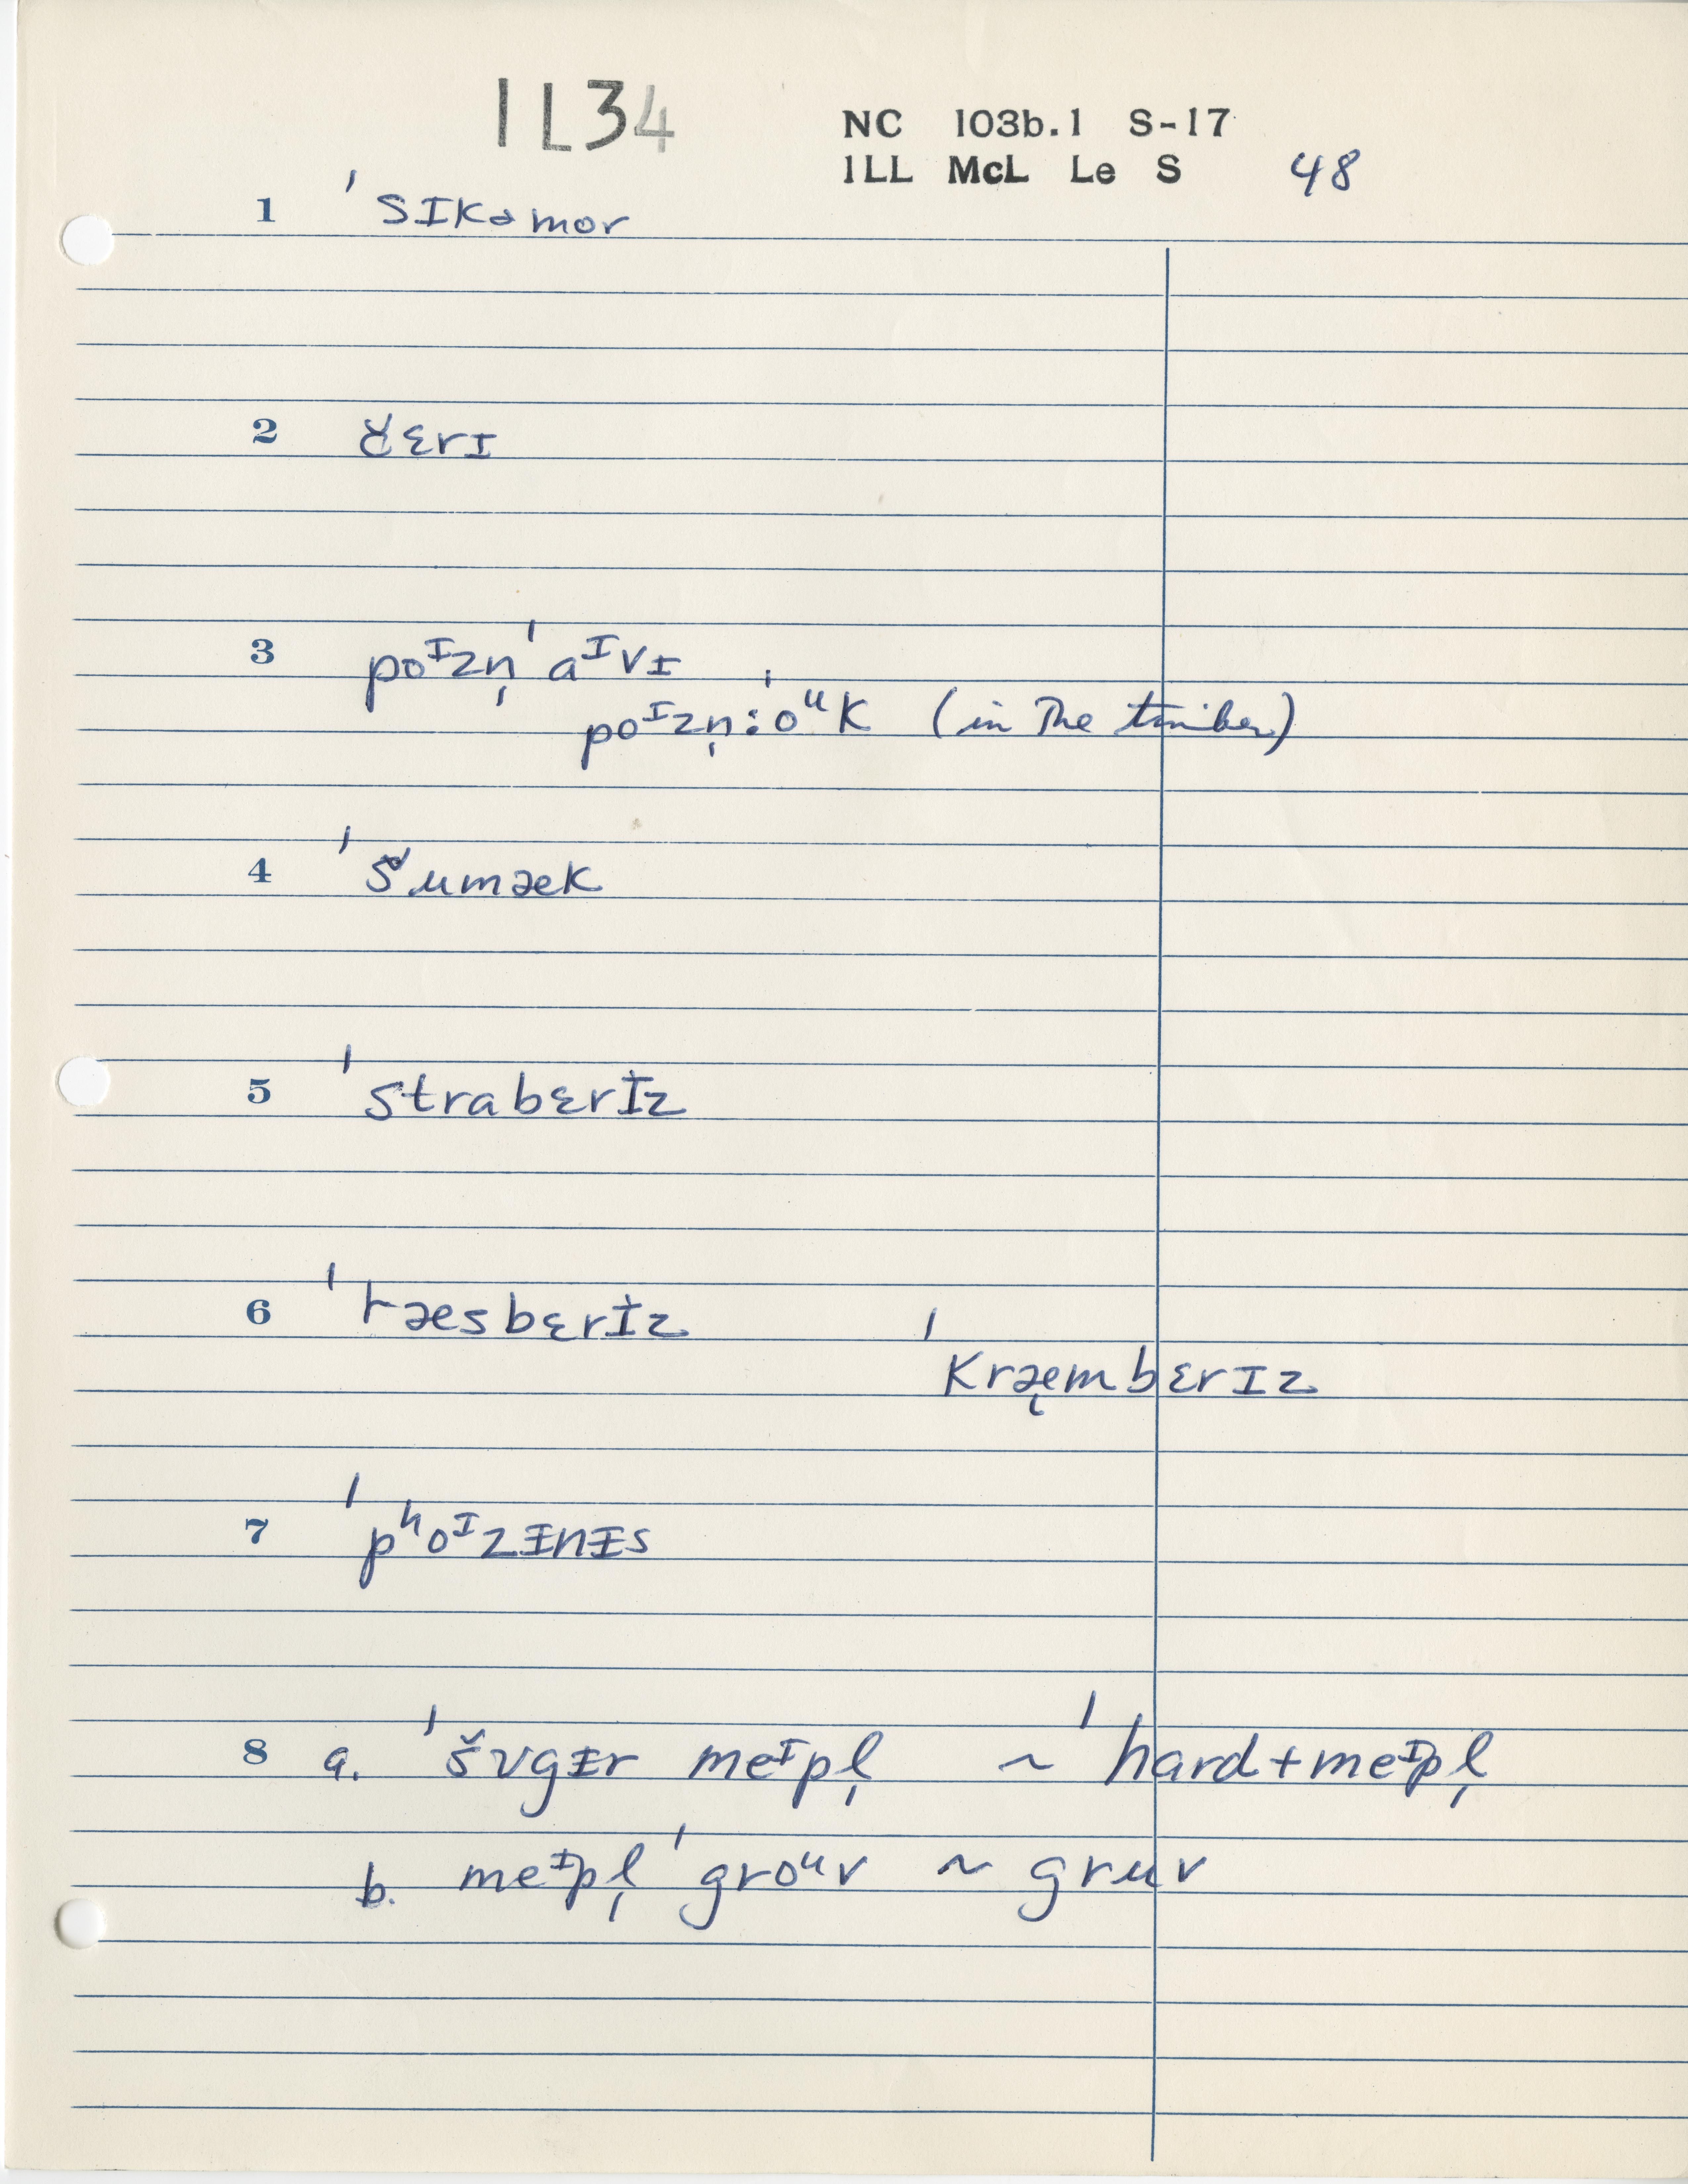 1L34
NC 103b.1 S-17
1LL McL Le S 48
1 ˈsɪkəmor
2 ꓤɛrɪ
3 poᶦzn̩ ˈaᶦvɪ
poᶦzn̩ː ˈoᵘk (in The timber)
4 ˈšumæk
5 ˈstrabɛrɪ̇z
6 ˈræsbɛrɪ̇z
ˈkræ̨mbɛrɪz
7 ˈpʰoᶦzᵻnᵻs
8 a. ˈšʊgᵻr meᶦpl̩ ~ ˈhard+meᶦpl̩
b. meᶦpl̩ ˈgroᵘv ~ gruv